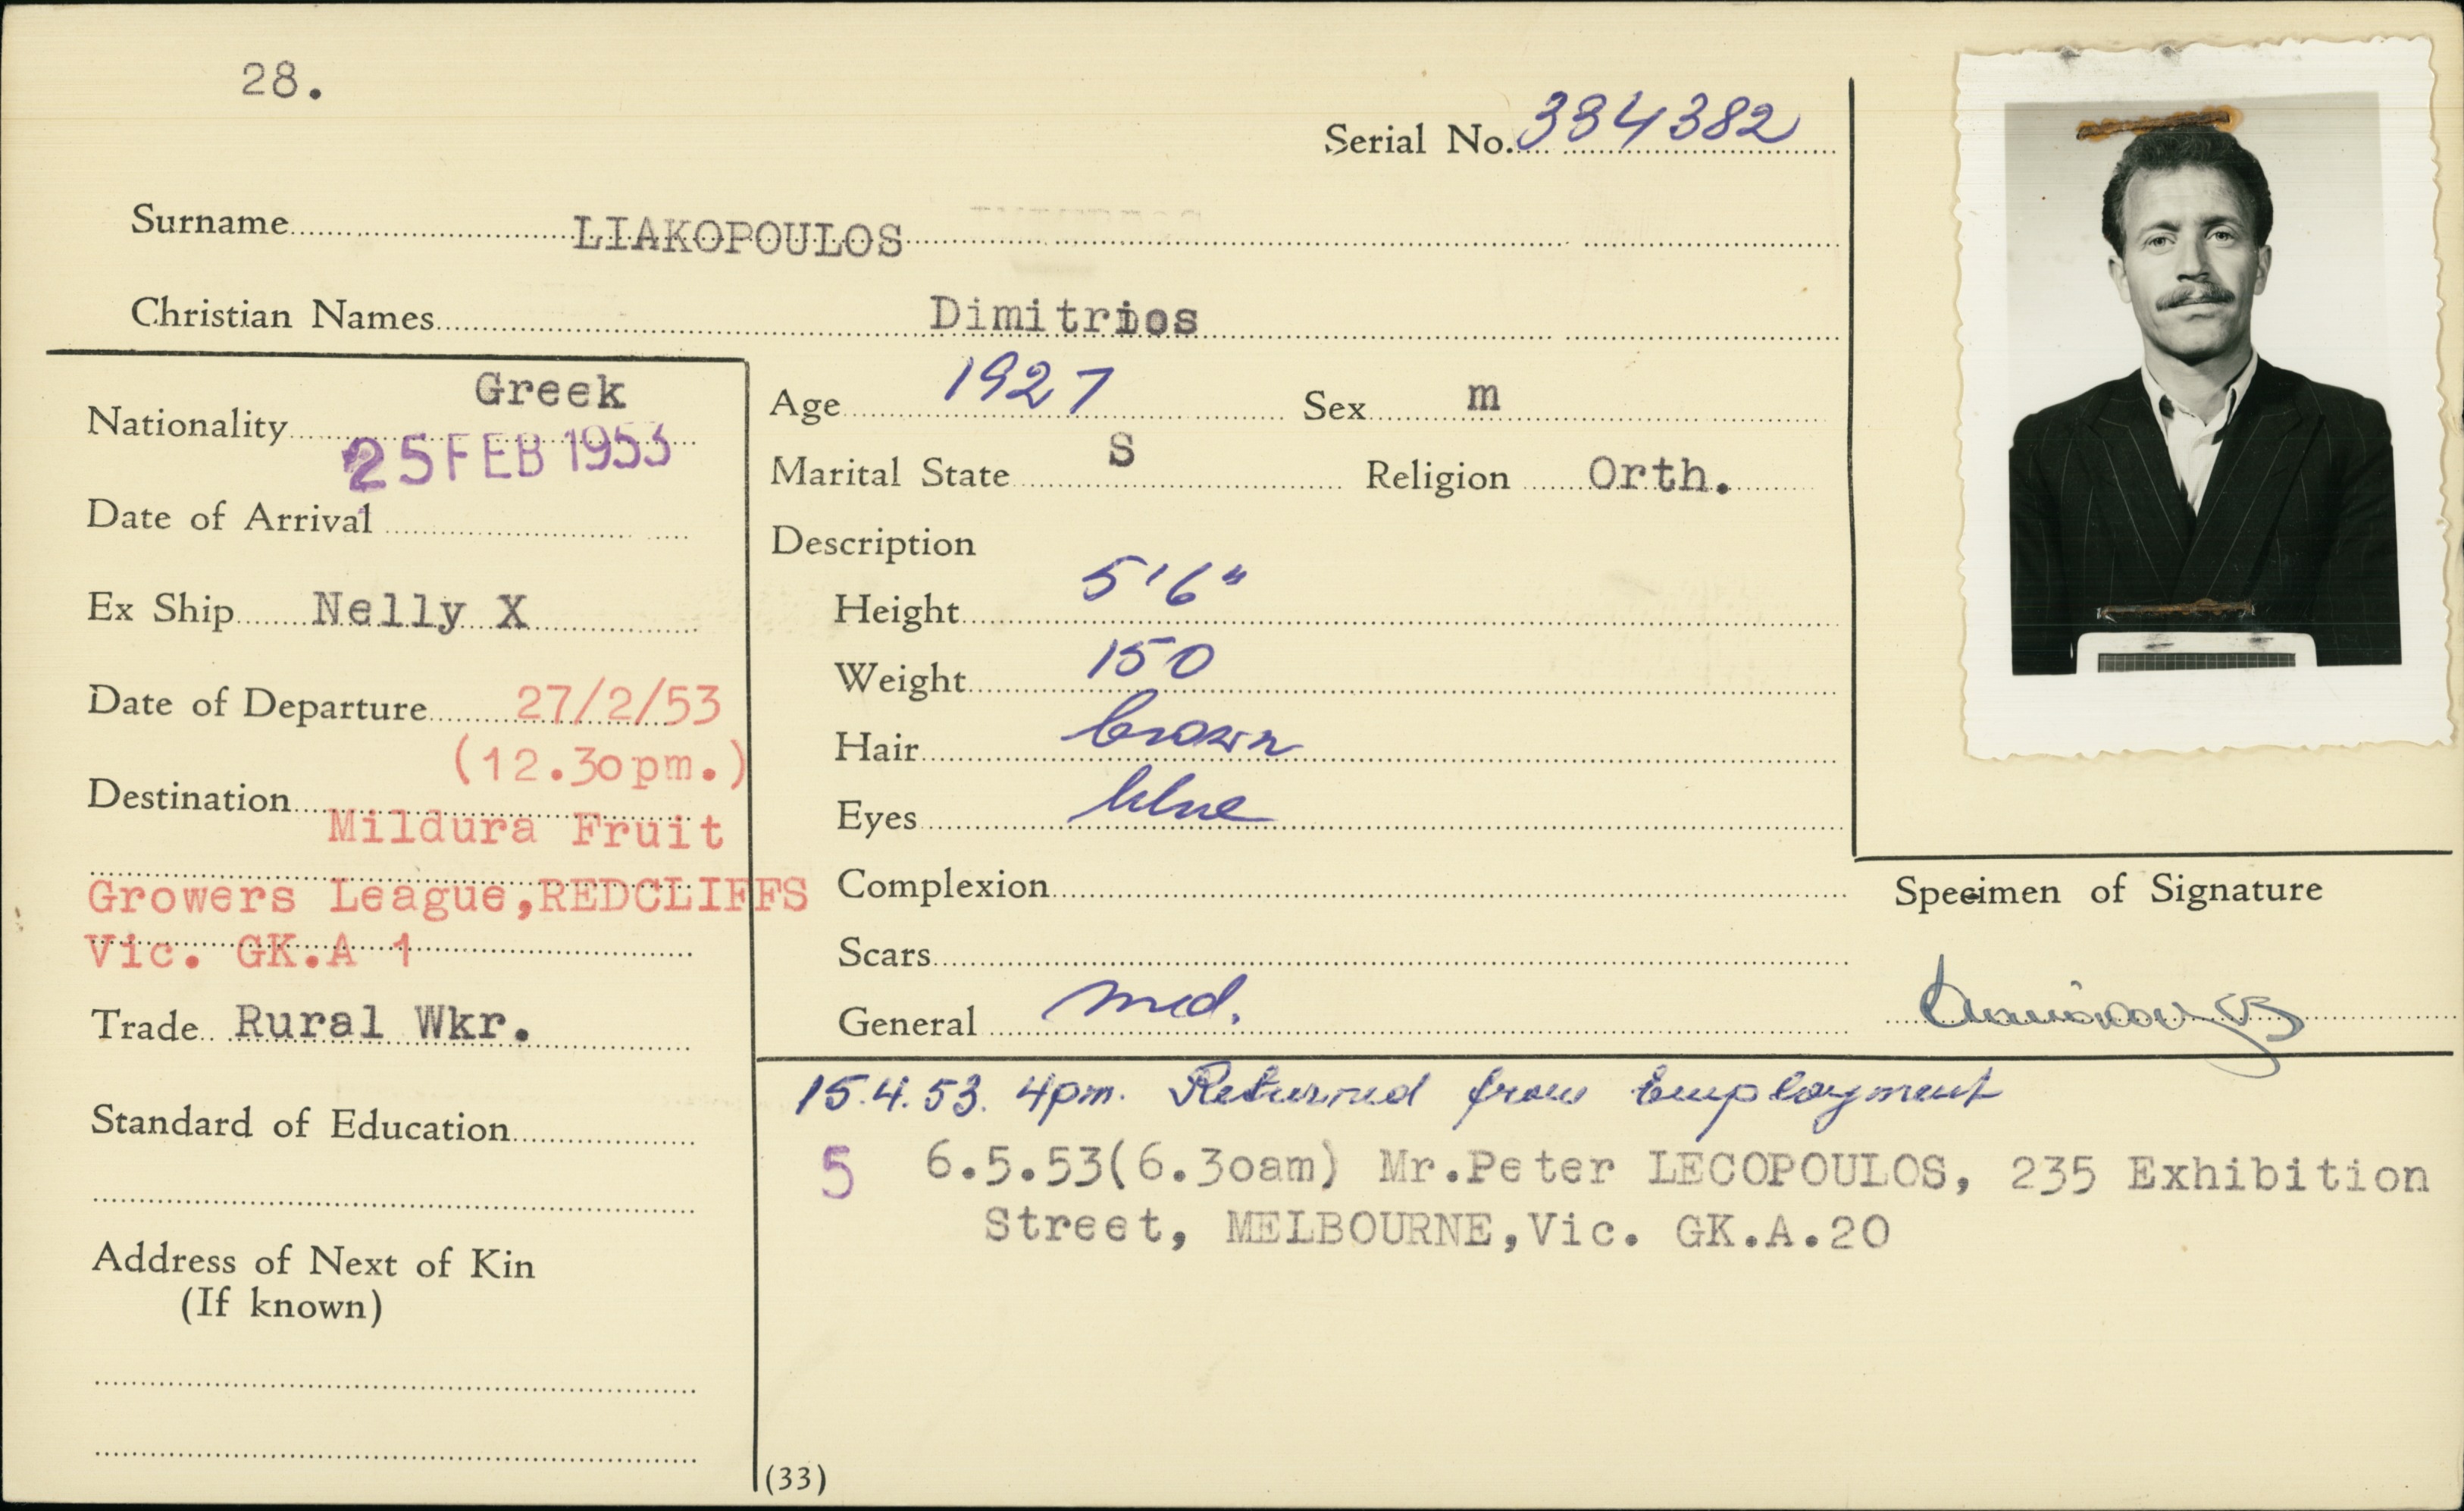 28.
Serial No. 334382
Surname LIAKOPOULOS
Christian Names Dimitrios
Nationality Greek
25 FEB 1953
Date of Arrival
Ex Ship Nelly X
Date of Departure 27/2/53
(12.30pm.)
Destination
Mildura Fruit
Growers League,REDCLIFFS
Vic. GK.A 1
Trade Rural Wkr.
Standard of Education
Address of Next of Kin
(If known)
Age 1927 Sex m
Marital State S Religion Orth.
Description
Height 5'6"
Weight 150
Hair brown
Eyes blue
Complexion
Scars
General med.
Specimen of Signature
15.4.53. 4pm. Returned from Employment
5 6.5.53(6.30am) Mr.Peter LECOPOULOS, 235 Exhibition
Street, MELBOURNE,Vic. GK.A.20
(33)